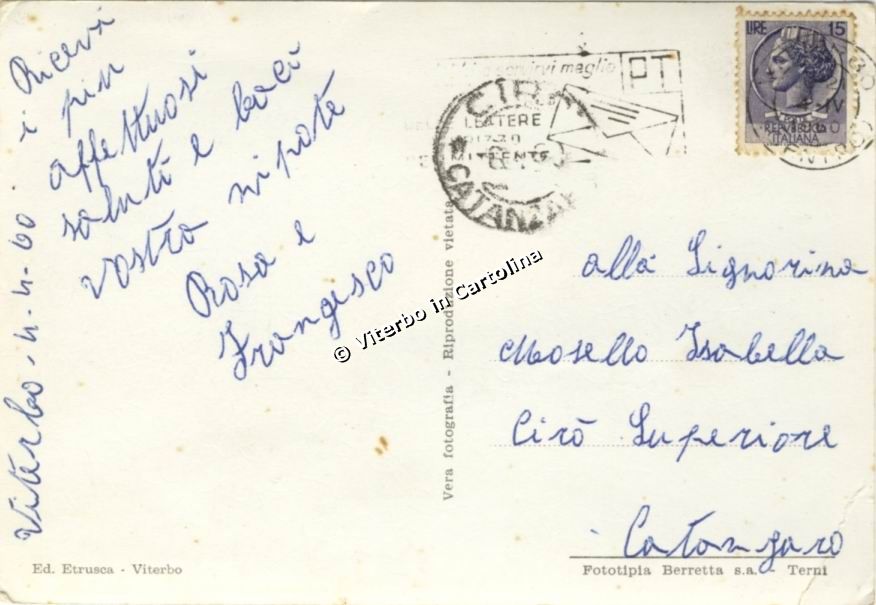 Ricevi
i piu
affettuosi
saluti e baci
vostro nipote
Rosa e
Frangesco
Viterbo, 4-4-60.
alla Signorina
Mosello Isabella
Cirò Superiore
Catangaro
LIRE 15
REPVBBLICA
ITALIANA
servirvi meglio
PT
LETTERE
MITTENTE
CIRÒ
CATANZA
Vera fotografia - Riproduzione vietata
© Viterbo in Cartolina
Ed. Etrusca - Viterbo
Fototipia Berretta s.a. - Terni